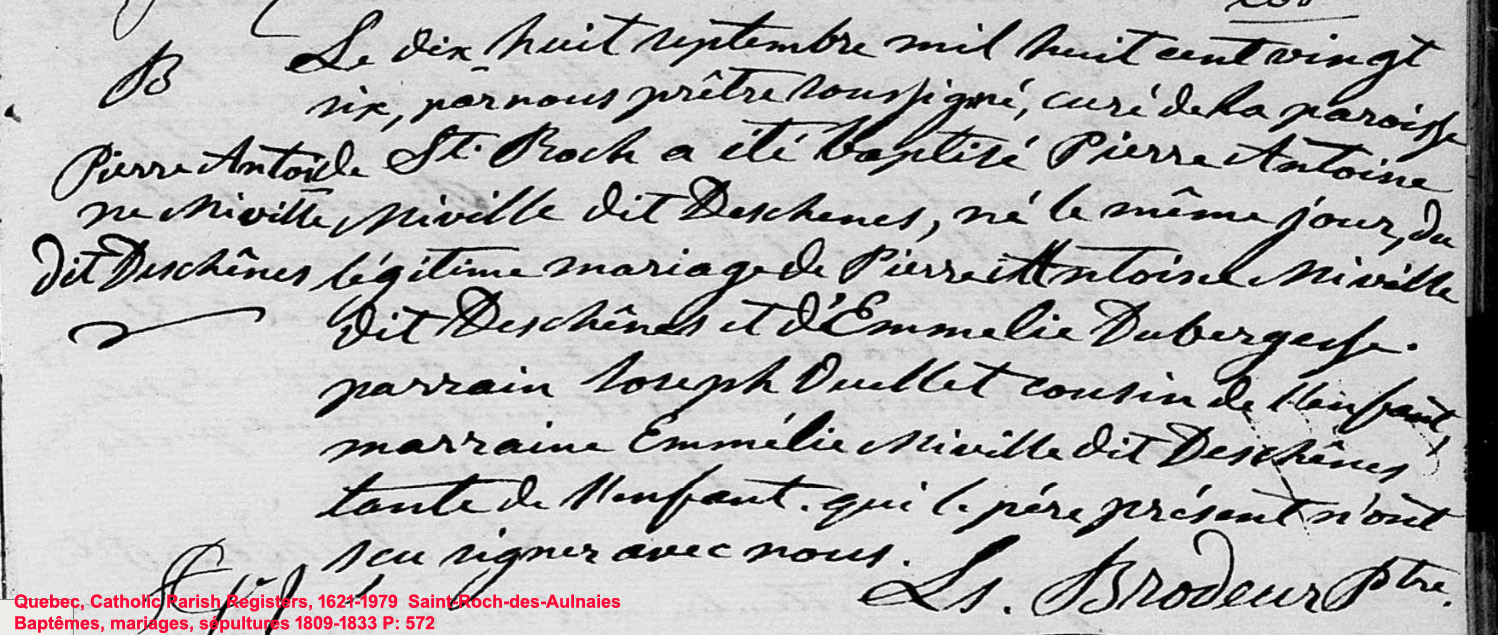 B
Pierre Antoi
ne Miville
dit Deschênes
Le dix huit septembre mil huit cent vingt
six, par nous prêtre soussigné, curé de la paroisse
de St. Roch a été baptisé Pierre Antoine
Miville dit Deschenes, né le même jour, du
légitime mariage de Pierre Antoine Miville
dit Deschênes et d'Emmelie Dubergesse.
parrain Joseph Ouellet cousin de l'enfant,
marraine Emmélie Miville dit Deschênes
tante de l'enfant. qui le père présent n'ont
sçu signer avec nous.
Ls. Brodeur Ptre.
Quebec, Catholic Parish Registers, 1621-1979 Saint-Roch-des-Aulnaies
Baptêmes, mariages, sépultures 1809-1833 P: 572